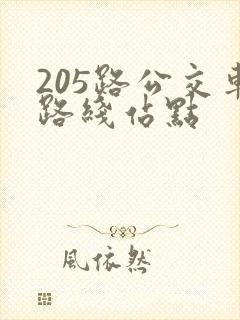 205路公交車
路綫佔點
風依然